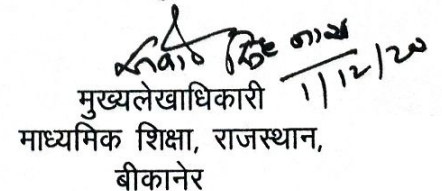 1/12/20
मुख्यलेखाधिकारी
माध्यमिक शिक्षा, राजस्थान,
बीकानेर